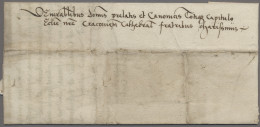 Venerabilibus dominis prelatis et Canonicis totique Capitulo
Ecclie nre Cracovien Cathedral fratribus charissimis